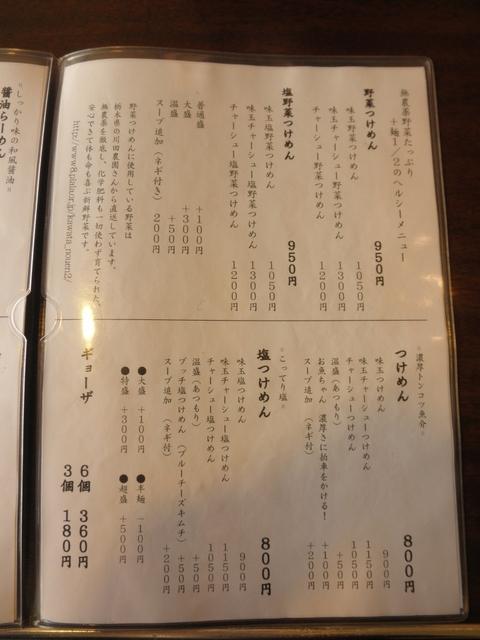 無農薬野菜たっぷり
+麺1/2のヘルシーメニュー
野菜つけめん 950円
味玉野菜つけめん 1050円
味玉チャーシュー野菜つけめん 1300円
チャーシュー野菜つけめん 1200円
塩野菜つけめん 950円
味玉塩野菜つけめん 1050円
味玉チャーシュー塩野菜つけめん 1300円
チャーシュー塩野菜つけめん 1200円
普通盛 +100円
大盛 +300円
温盛 +50円
スープ追加(ネギ付き) 200円
野菜つけめんに使用している野菜は
栃木県の川田農園さんから直送しています。
無農薬を徹底し、化学肥料も一切使わず育てられた、
安心できて体も命も喜ぶ新鮮野菜です。
http://www8.plala.or.jp/kawata_nouen2/
※濃厚トンコツ魚介※
つけめん 800円
味玉つけめん 900円
味玉チャーシューつけめん 1150円
チャーシューつけめん 1050円
温盛(あつもり) +50円
お魚ちゃん 濃厚さに拍車をかける! +100円
スープ追加(ネギ付) +200円
※こってり塩※
塩つけめん 800円
味玉塩つけめん 900円
味玉チャーシュー塩つけめん 1150円
チャーシュー塩つけめん 1050円
温盛(あつもり) +50円
ブッチ塩つけめん(ブルーチーズキムチ) +50円
スープ追加(ネギ付) +200円
●大盛 +100円 ●半麺 -100円
●特盛 +300円 ●超盛 +500円
ギョーザ 6個 360円
3個 180円
※しっかり味の和風醤油※
醤油らーめん